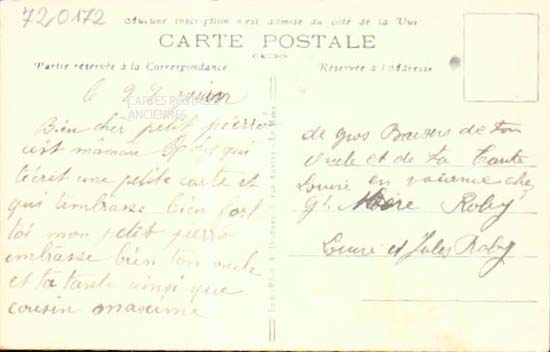 720172
Aucune inscription n'est admise du côté de la Vue
CARTE POSTALE
Partie réservée à la Correspondance
Réservée à l'Adresse
le 22 juin
CARTES POSTALES
ANCIENNES
Bien cher petit pierrot
cest maman Roby qui
técrit une petite carte et
qui tembrasse bien fort
toi mon petit pierro
embrasse bien ton oncle
et ta tante ainsi que
cousin maxime
de gros Baisers de ton
oncle et de ta tante
Louise en vacance chez
Gd Mère Roby
Louise et Jules Roby